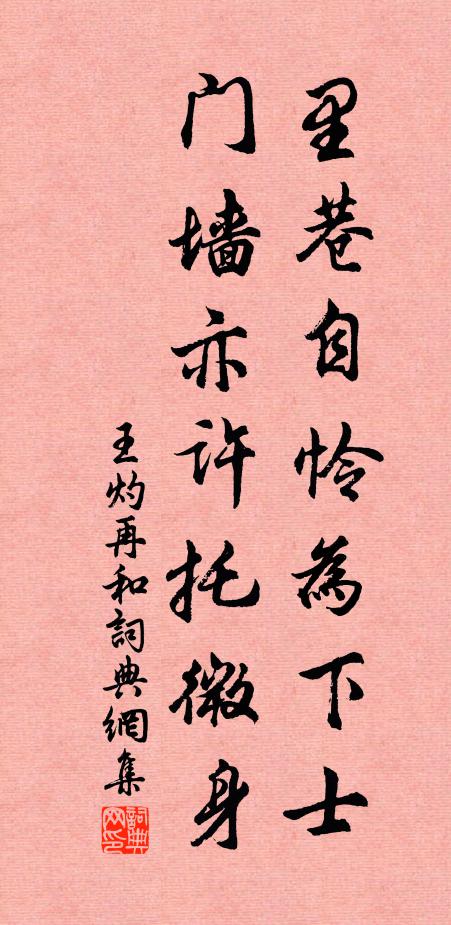 里巷自怜為下士
门墙亦许托微身
王灼再和詞典網集
詞典網印